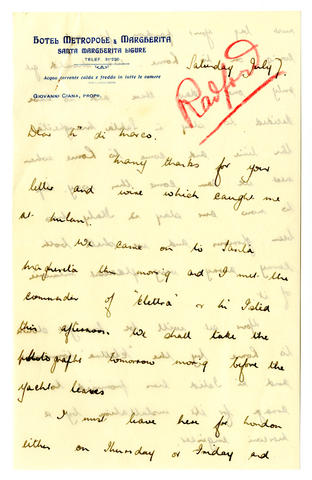 HOTEL METROPOLE & MARGHERITA
SANTA MARGHERITA LIGURE
TELEF.
Acqua corrente calda e fredda in tutte le camere
GIOVANNI CIANA, PROPR.
Saturday July 7
Radford
Dear Mr di Marco.
Many thanks for your
letter and wire which caught me
at Milan.
We came on to Santa
Margherita this morning and I met the
commander of "Elettra"
this afternoon. We shall take the
photographs tomorrow morning before the
yacht leaves
I must leave here for London
either on Thursday or Friday and